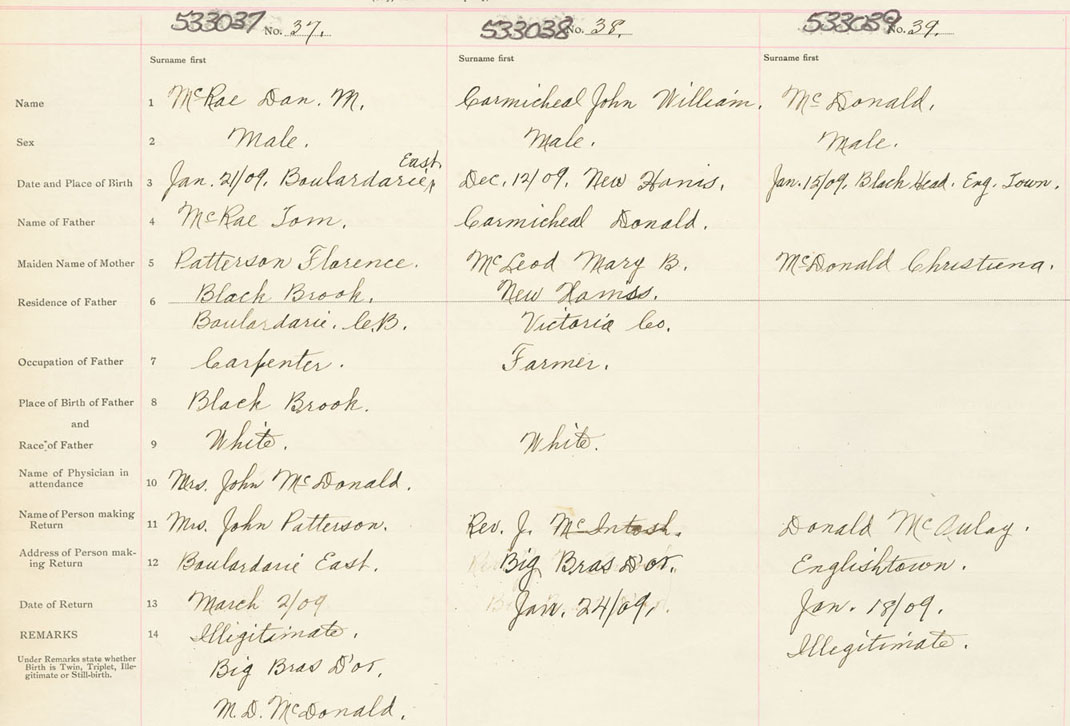 533037 No. 37. 533038 No. 38. 533039 No. 39.
Surname first Surname first Surname first
Name 1 McRae Dan. M. Carmicheal John William. McDonald.
Sex 2 Male. Male. Male.
East
Date and Place of Birth 3 Jan. 21/09. Boulardarie, Dec. 12/09. New Jan. 15/09. Black Head. Eng. Town.
Name of Father 4 McRae Tom. Carmicheal Donald.
Maiden Name of Mother 5 Patterson Florence. McLeod Mary B. McDonald Christena.
Residence of Father 6 Black Brook. New
Boulardarie. C.B. Victoria Co.
Occupation of Father 7 Carpenter. Farmer.
Place of Birth of Father 8 Black Brook.
and
Race of Father 9 White. White.
Name of Physician in
attendance 10 Mrs. John McDonald.
Name of Person making
Return 11 Mrs. John Patterson. Rev. J. McIntosh. Donald McAulay.
Address of Person mak-
ing Return 12 Boulardarie East. Big Bras D'or. Englishtown.
Date of Return 13 March 2/09 Jan. 24/09. Jan. 18/09.
REMARKS 14 Illigitimate. Illegitimate.
Under Remarks state whether
Birth is Twin, Triplet, Ille-
gitimate or Still-birth.
Big Bras D'or.
M.D. McDonald.